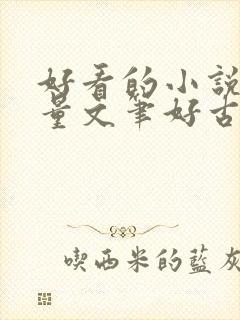 好看的小說
量文筆好古
喫西米的藍灰